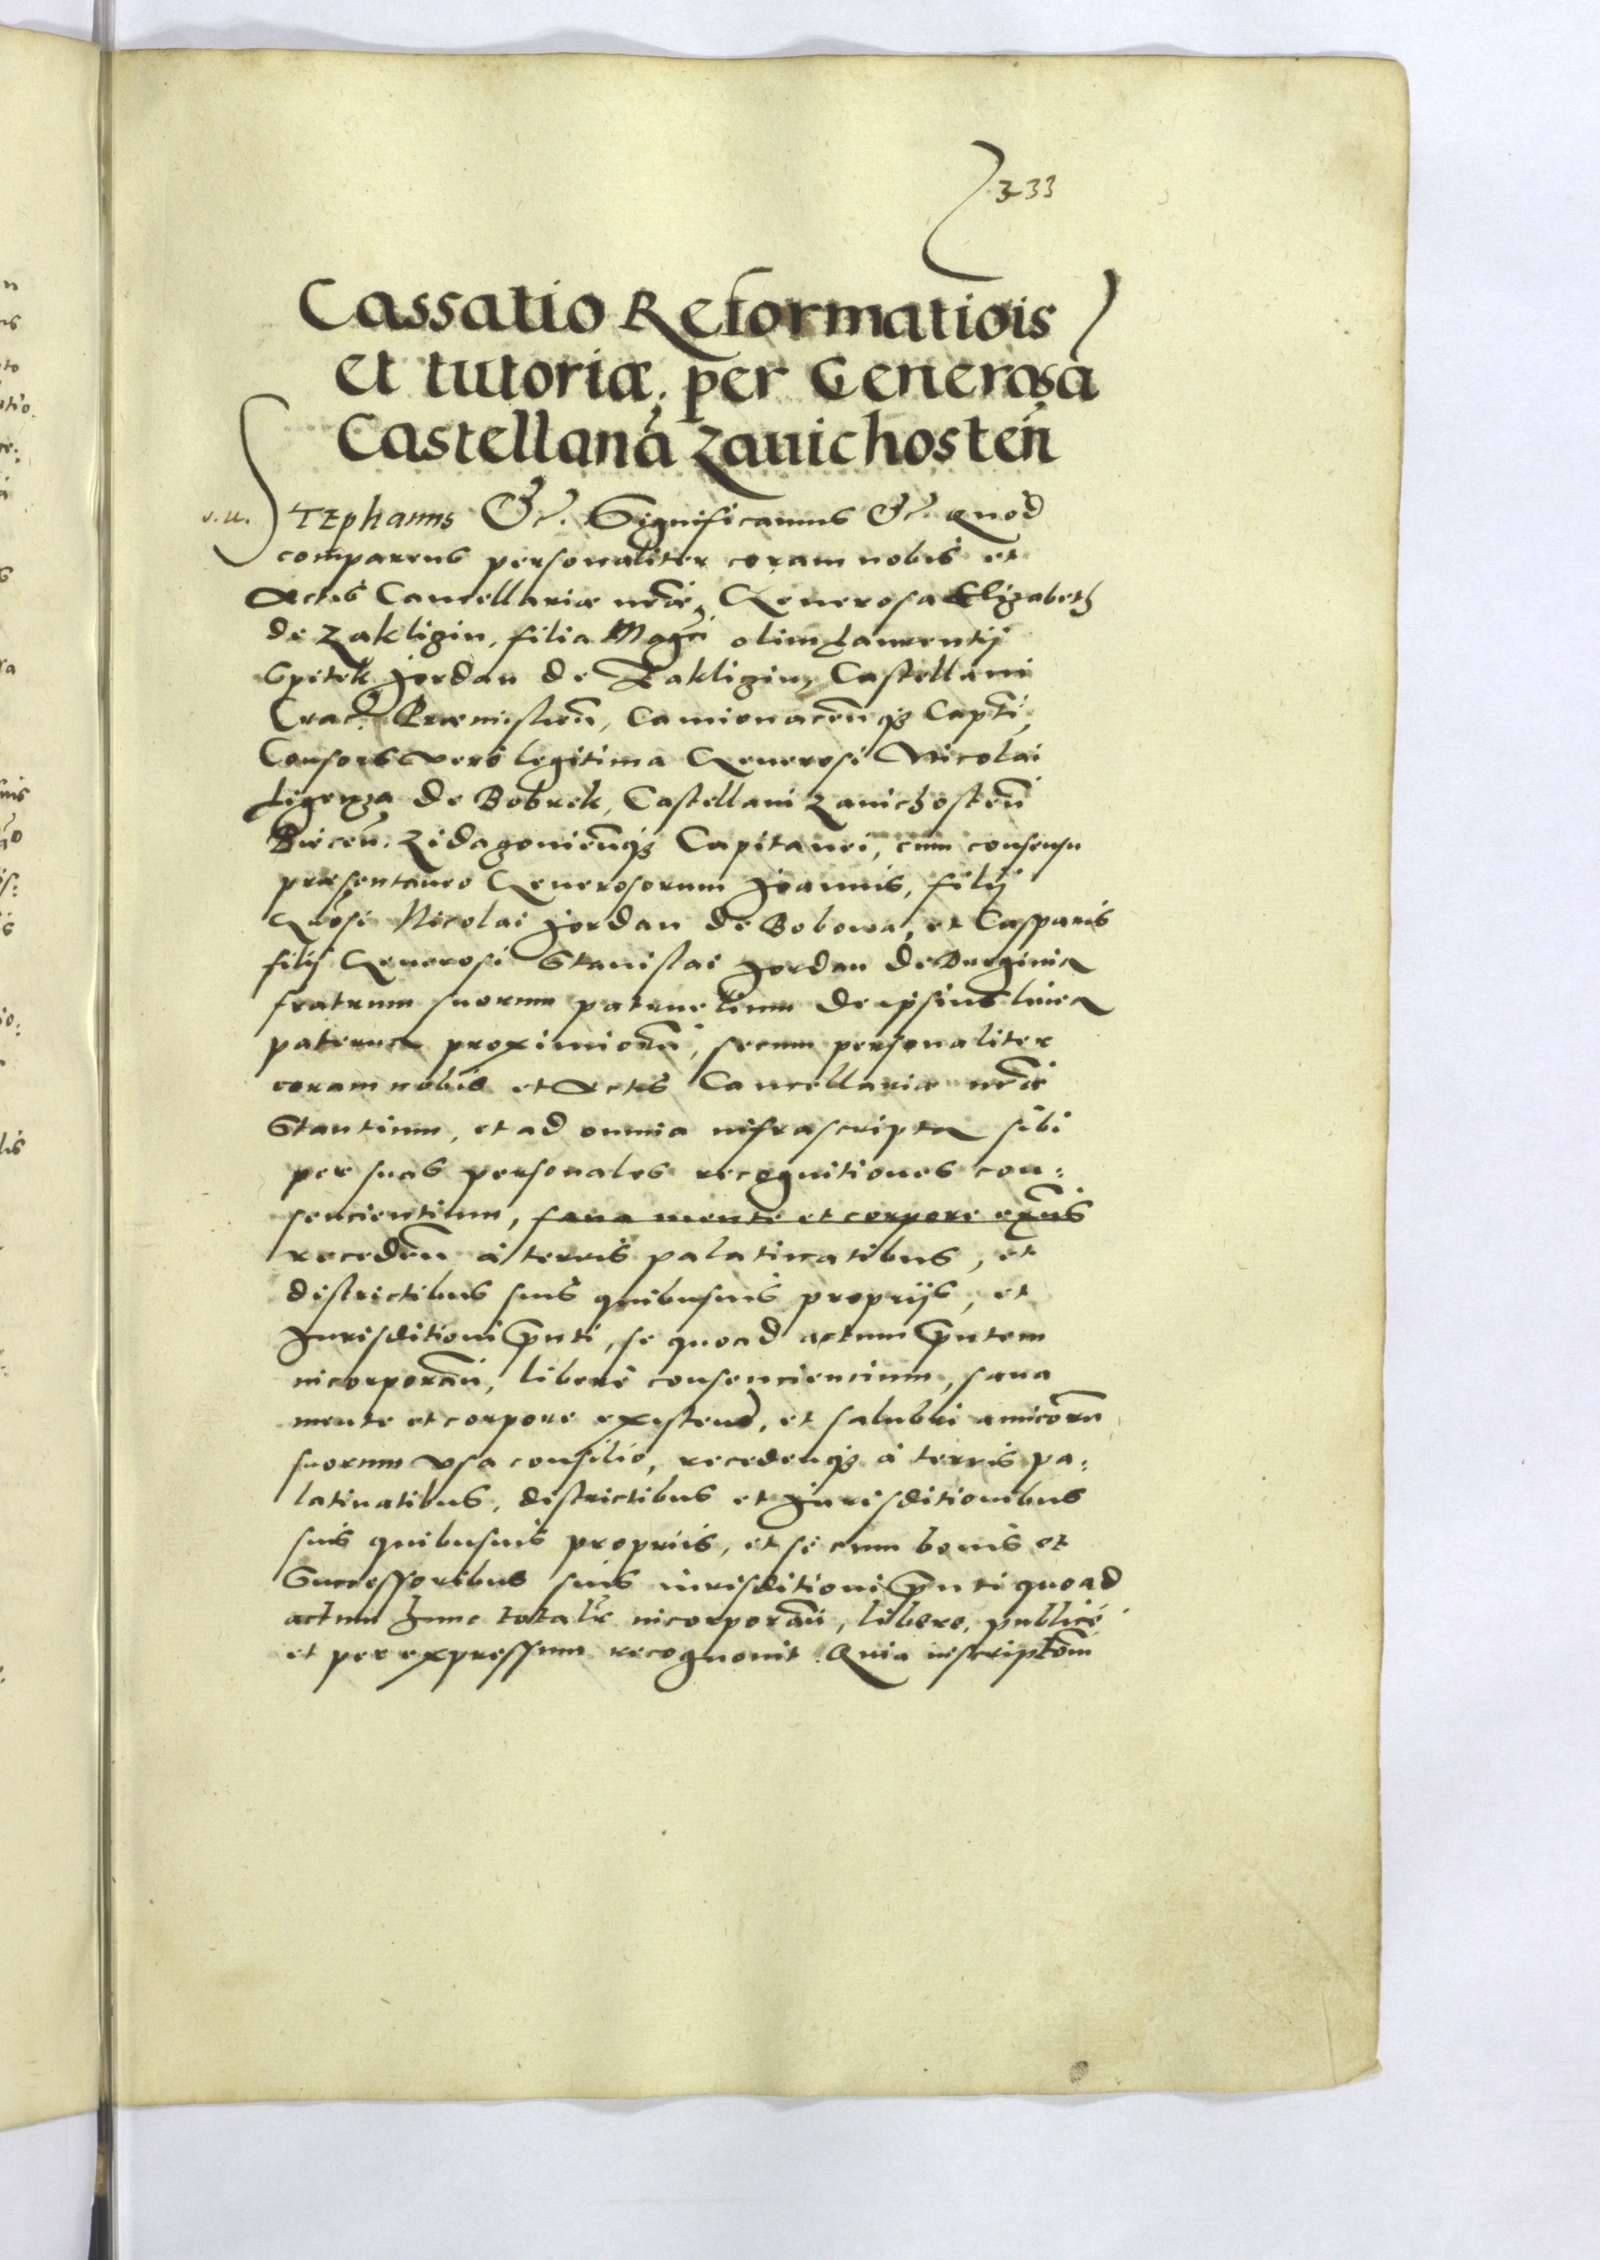 333
Cassatio Reformatiois
et tutoriæ, per Generosã
Castellanã Zauichosteñ
v. u.
STEphanus &c. Significamus &c. quod
comparens personaliter coram nobis et
Actis Cancellariæ nræ, Generosa Elizabeth
de Zakligin, filia Magci olim Laurentij
Spitek Jordan de Zakligin, Castellani
Crac. Præmislieñ, Camionaceñq3 Capti,
Consors vero legitima Generosi Nicolai
Ligenza de Bobrek, Castellani Zauichosteñ
Bieceñ. Zidagonieñq3 Capitanei, cum consensu
præsentaneo Generosorum Joannis, filij
Grosi Nicolai Jordan de Bobowa, et Casparis
filij Generosi Stanislai Jordan de
fratrum suorum patruelium de ipsius linea
paterna proximiorũ, secum personaliter
coram nobis et Actis Cancellariæ nræ
Stantium, et ad omnia infrascripta sibi
per suas personales recognitiones con:
sencientium, sana mente et corpore exñs
recedeñ à terris palatinatibus, et
districtibus suis quibusuis proprijs, et
Jurisditioni pnti, se quoad actum pntem
incorporañ, liberè consenciencium, sana
mente et corpore existeñ, et salubri amicorũ
suorum vsa consilio, recedenq3 à terris pa:
latinatibus, districtibus et Jurisditionibus
suis quibusuis propriis, et se cum bonis et
Successoribus suis iurisditioni pnti quoad
actum hunc totalr incorporañ, libere, publicè
et per expressum recognouit. Quia inscriptõm